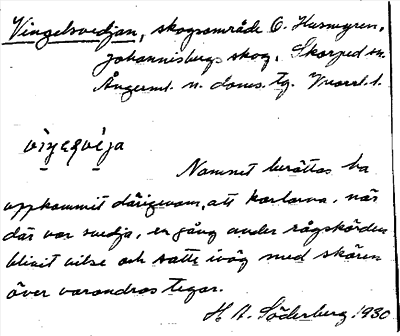 Vingelsvedjan, skogsområde O. Husmyren,
Johannisbergs skog, Skorped sn.
Ångerml. n. doms. tg. Västl. l.
viŋəlsvéja
Namnet berättas ha
uppkommit därigenom, att karlarna, när
där var svedja, en gång under rågskörden
blivit vilse och satte iväg med skären
över varandras tegar.
H A. Söderberg. 1930